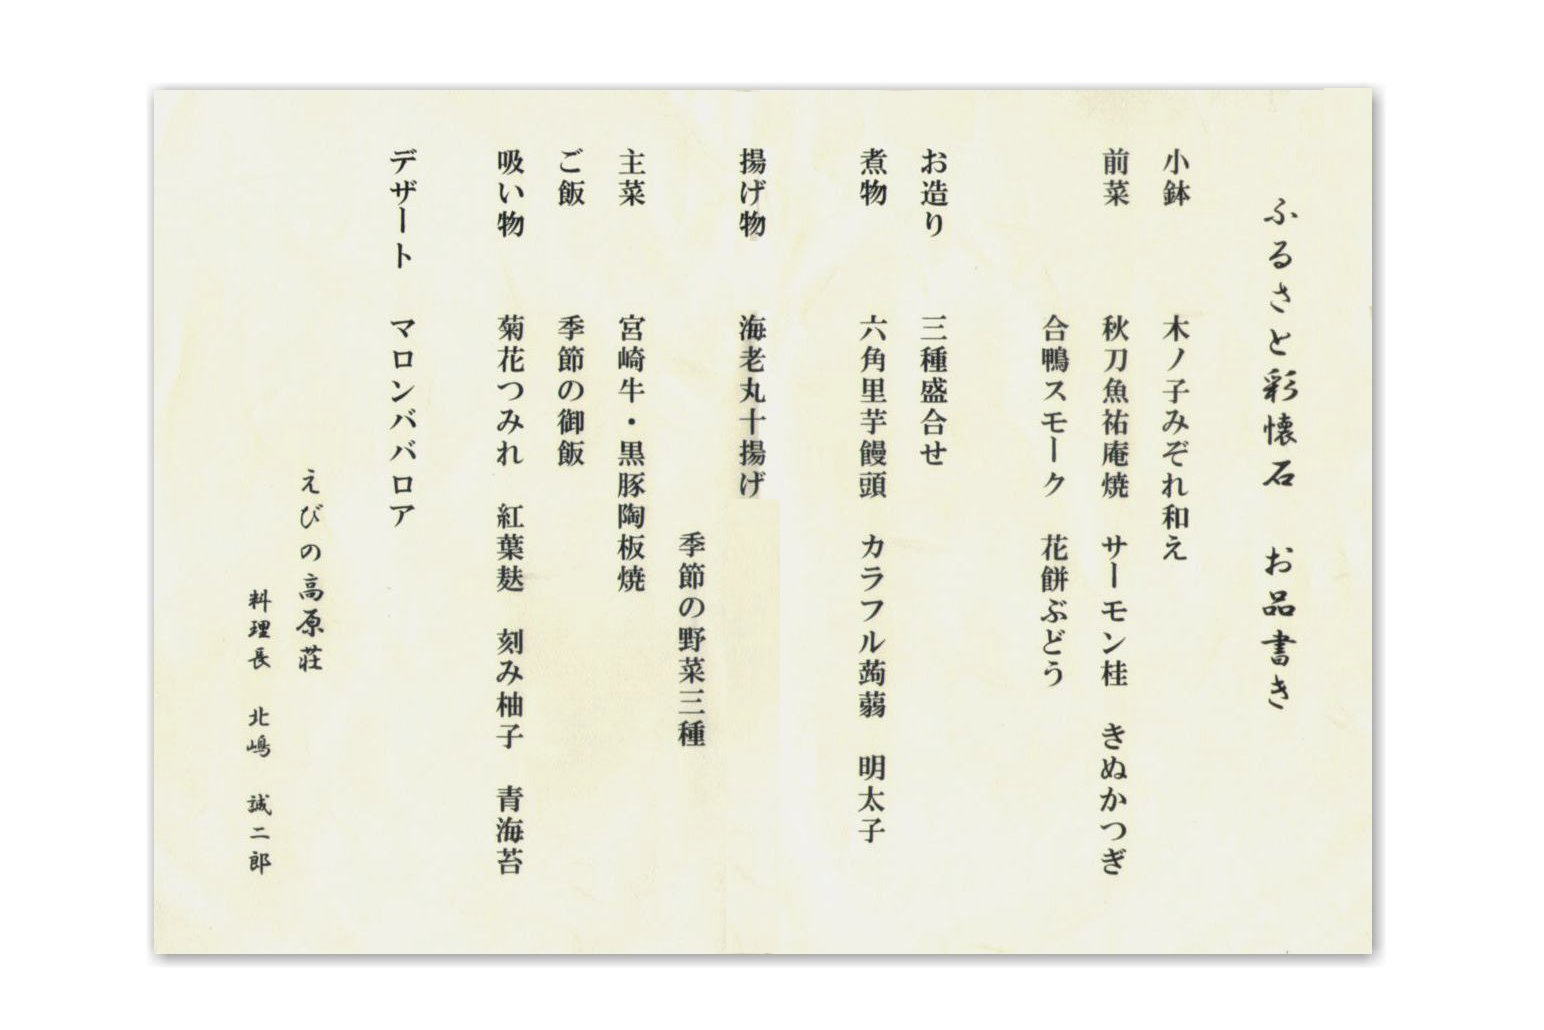 ふるさと彩懐石　お品書き
小鉢　木ノ子みぞれ和え
前菜　秋刀魚祐庵焼　サーモン桂　きぬかつぎ
合鴨スモーク　花餅ぶどう
お造り　三種盛合せ
煮物　六角里芋饅頭　カラフル蒟蒻　明太子
揚げ物　海老丸十揚げ
季節の野菜三種
主菜　宮崎牛・黒豚陶板焼
ご飯　季節の御飯
吸い物　菊花つみれ　紅葉麸　刻み柚子　青海苔
デザート　マロンババロア
えびの高原荘
料理長　北嶋　誠二郎